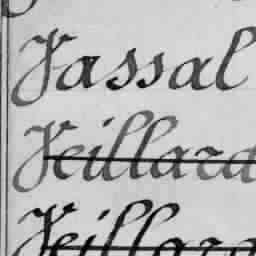 Vassal
Veillard
Veillard